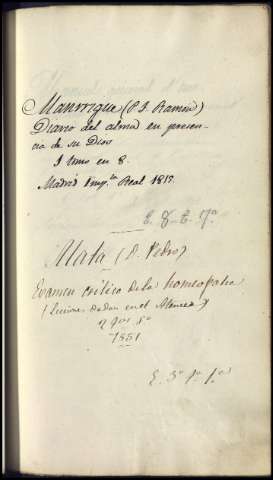 Manrrique (P. J. Ramon)
Diario del alma en presen-
cia de su Dios
1 tomo en 8.
Madrid Imp.ta Real 1815.
E. 8. E. 7.º
Mata (D. Pedro)
Examen critico de la homeopatia
(Lecciones dadas en el Ateneo)
2 8º
1851
E. 3º